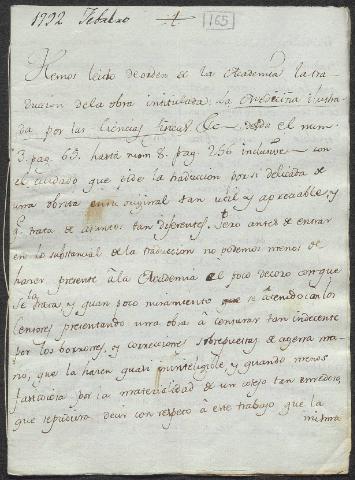 1792 Febrero 1 165
Hemos leido de orden de la Academia la tra-
duccion de la obra intitulada: La Medicina ilustra-
da por las Ciencias Fisicas &c desde el num
3. pag. 65. hasta num 8. pag. 256 inclusive con
el cuidado que pide la traduccion por si delicada de
una obrita en su original tan util y apreciable, y
q.e trata de asuntos tan diferentes. Pero antes de entrar
en lo substancial de la traduccion no podemos menos de
hacer presente â la Academia el poco decoro con que
se la trata y quan poco miramiento que se â tenido con los
Censores presentando una obra â censurar tan indecente
por los borrones, y correcciones sobrepuestas de agena ma-
no, que la hacen quasi ininteligible, y quando menos
fastidiosa por la materialidad de un cotejo tan enredoso,
que se pudiera decir con respeto â este trabajo que la
misma